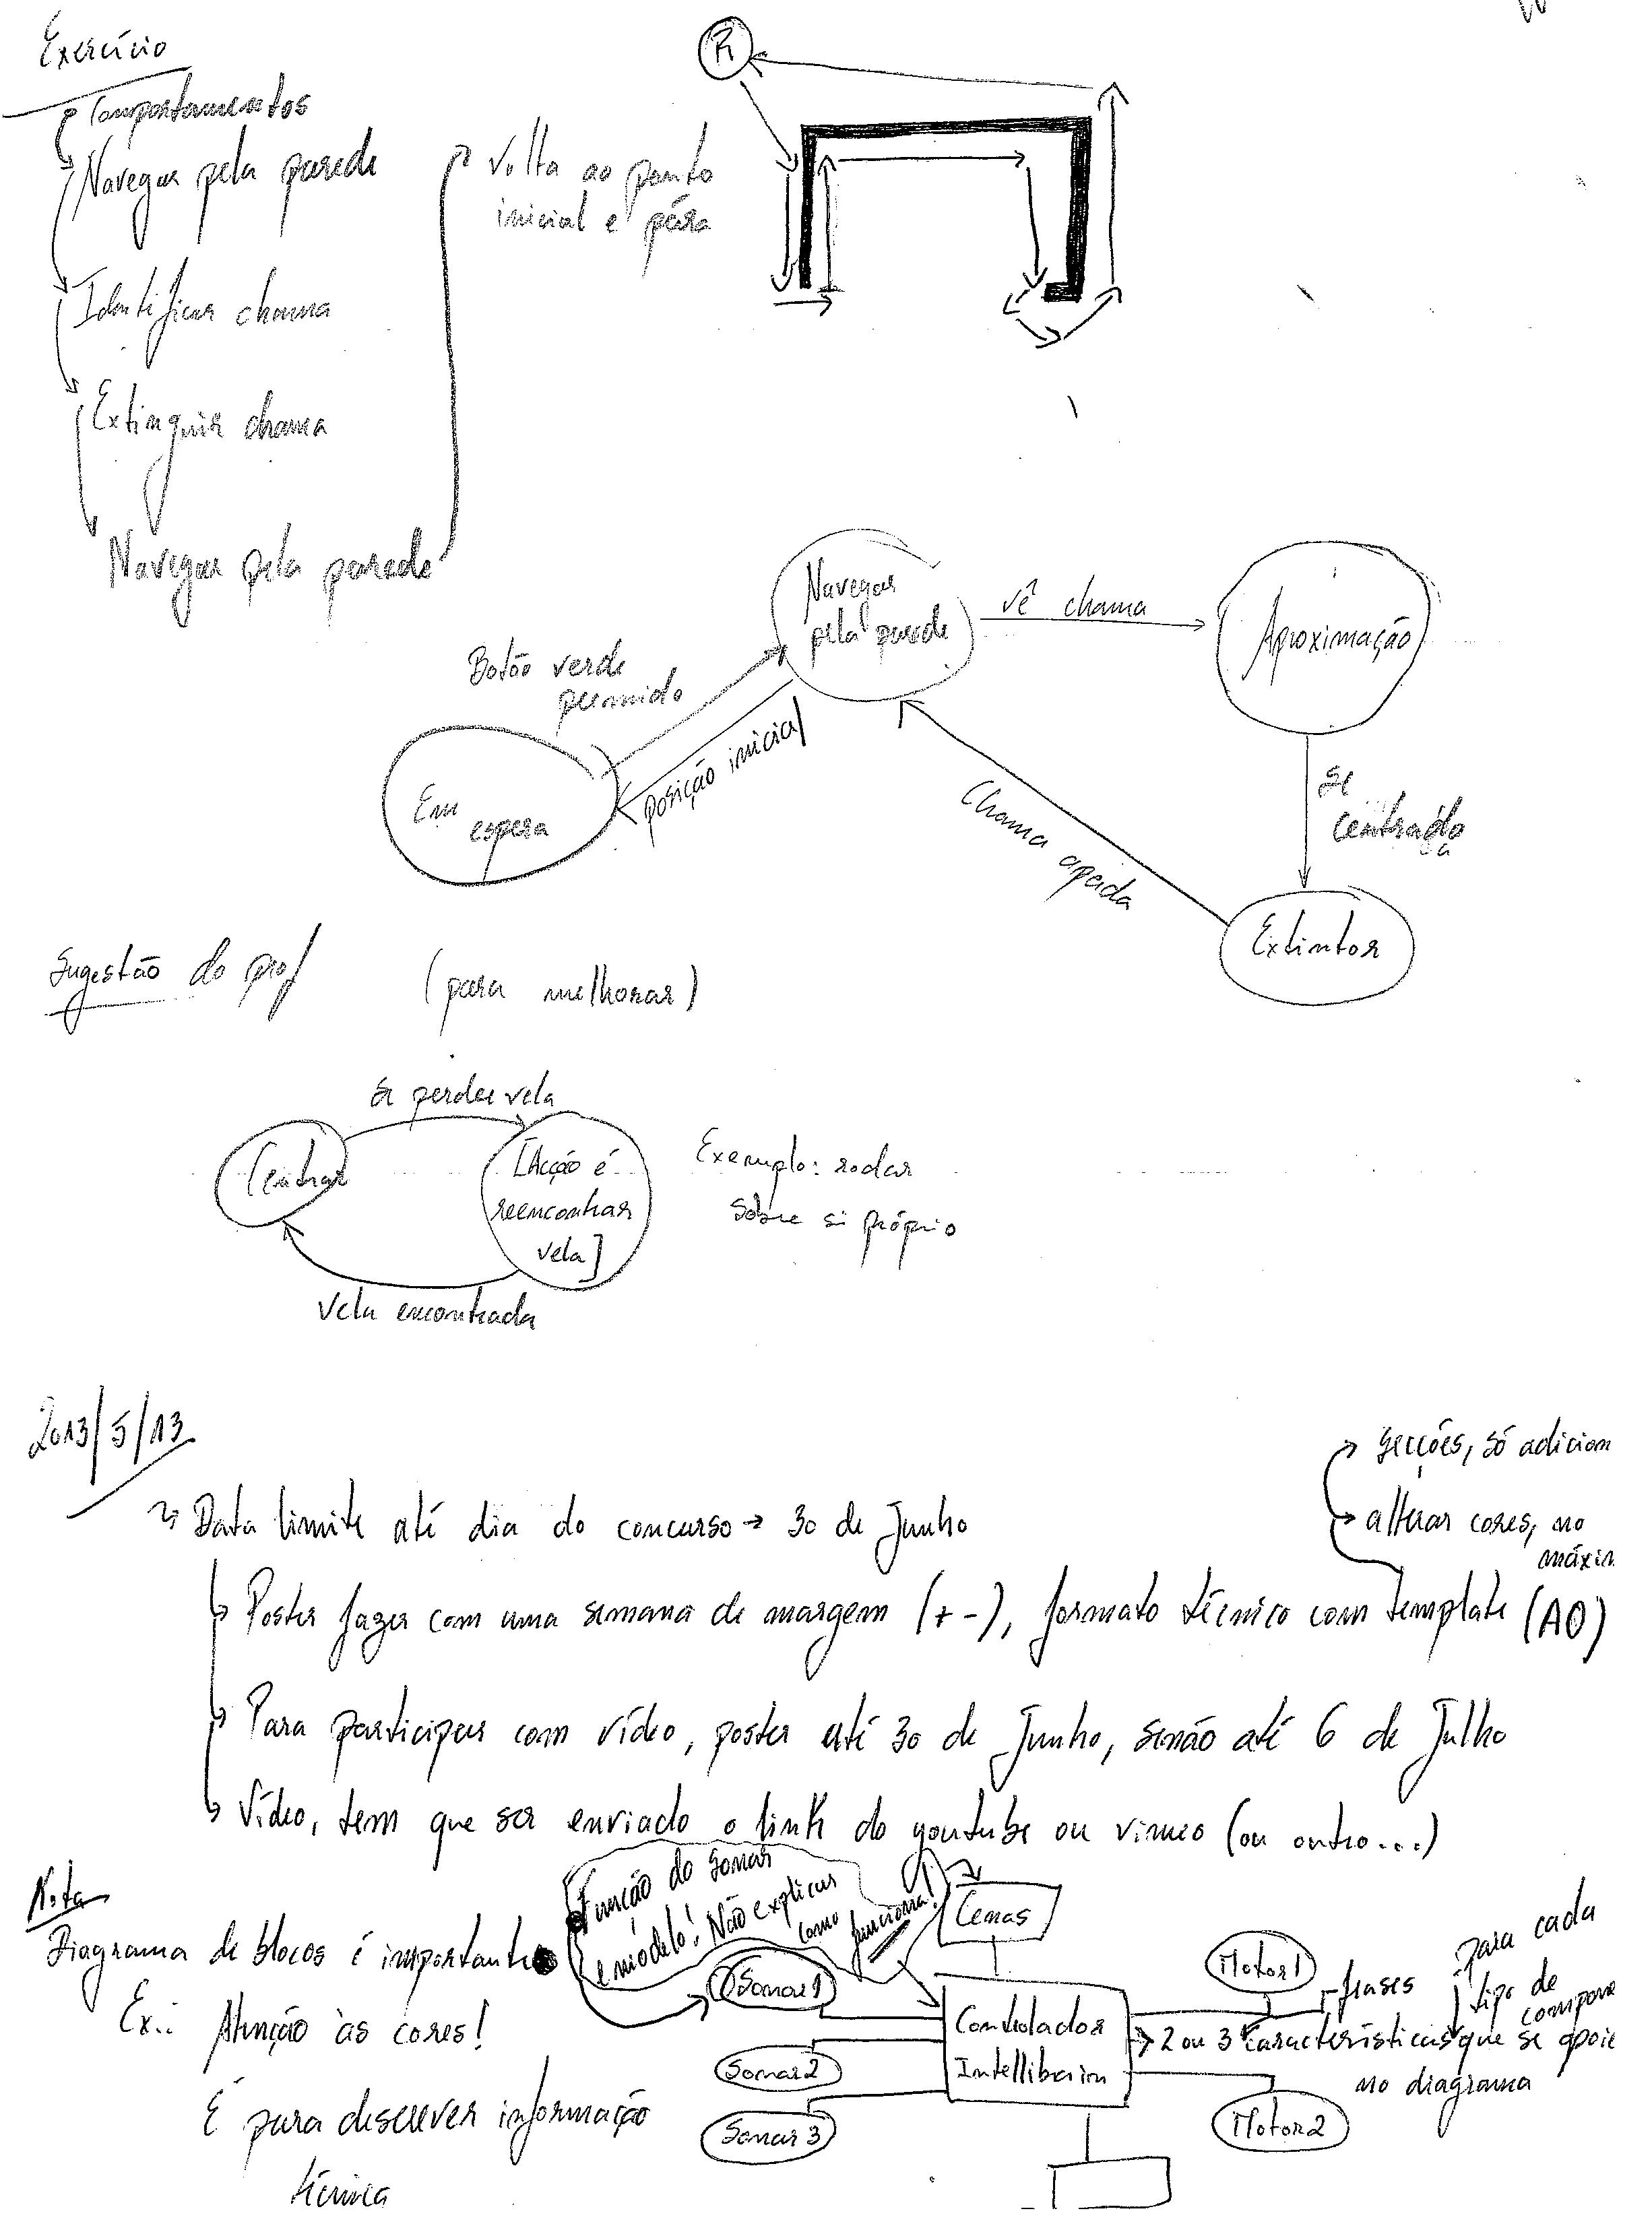 Exercício
Comportamentos
Navegar pela parede
Identificar chama
Extinguir chama
Navegar pela parede
Volta ao ponto
inicial e pára
R
Navegar
pela parede
vê chama
Aproximação
Botão verde
premido
posição inicial
Em
espera
se
centrado
a
Chama apagada
Extintor
Sugestão do prof
(para melhorar)
se perder vela
Centrar
[Acção é
reencontrar
vela]
Vela encontrada
Exemplo: rodar
sobre si próprio
2013/5/13
secções, só adicion
alterar cores, no
máxim
Data limite até dia do concurso → 30 de Junho
Poster fazer com uma semana de margem (+-), formato técnico com template (A0)
Para participar com vídeo, poster até 30 de Junho, senão até 6 de Julho
Vídeo, tem que ser enviado o link do youtube ou vimeo (ou outro...)
Nota
Diagrama de blocos é importante
Ex.: Atenção às cores!
É para descrever informação
técnica
Função do sonar
e modelo! Não explicar
como funciona!
Sonar 1
Sonar 2
Sonar 3
Controlador
Motor 1
Motor 2
frases
para cada
tipo de
compone
2 ou 3 características que se apoie
no diagrama